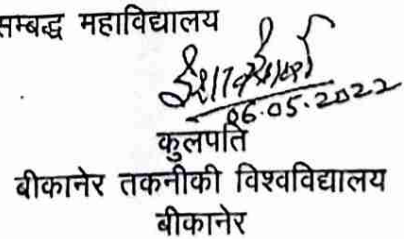 सम्बद्ध महाविद्यालय
06.05.2022
कुलपति
बीकानेर तकनीकी विश्वविद्यालय
बीकानेर